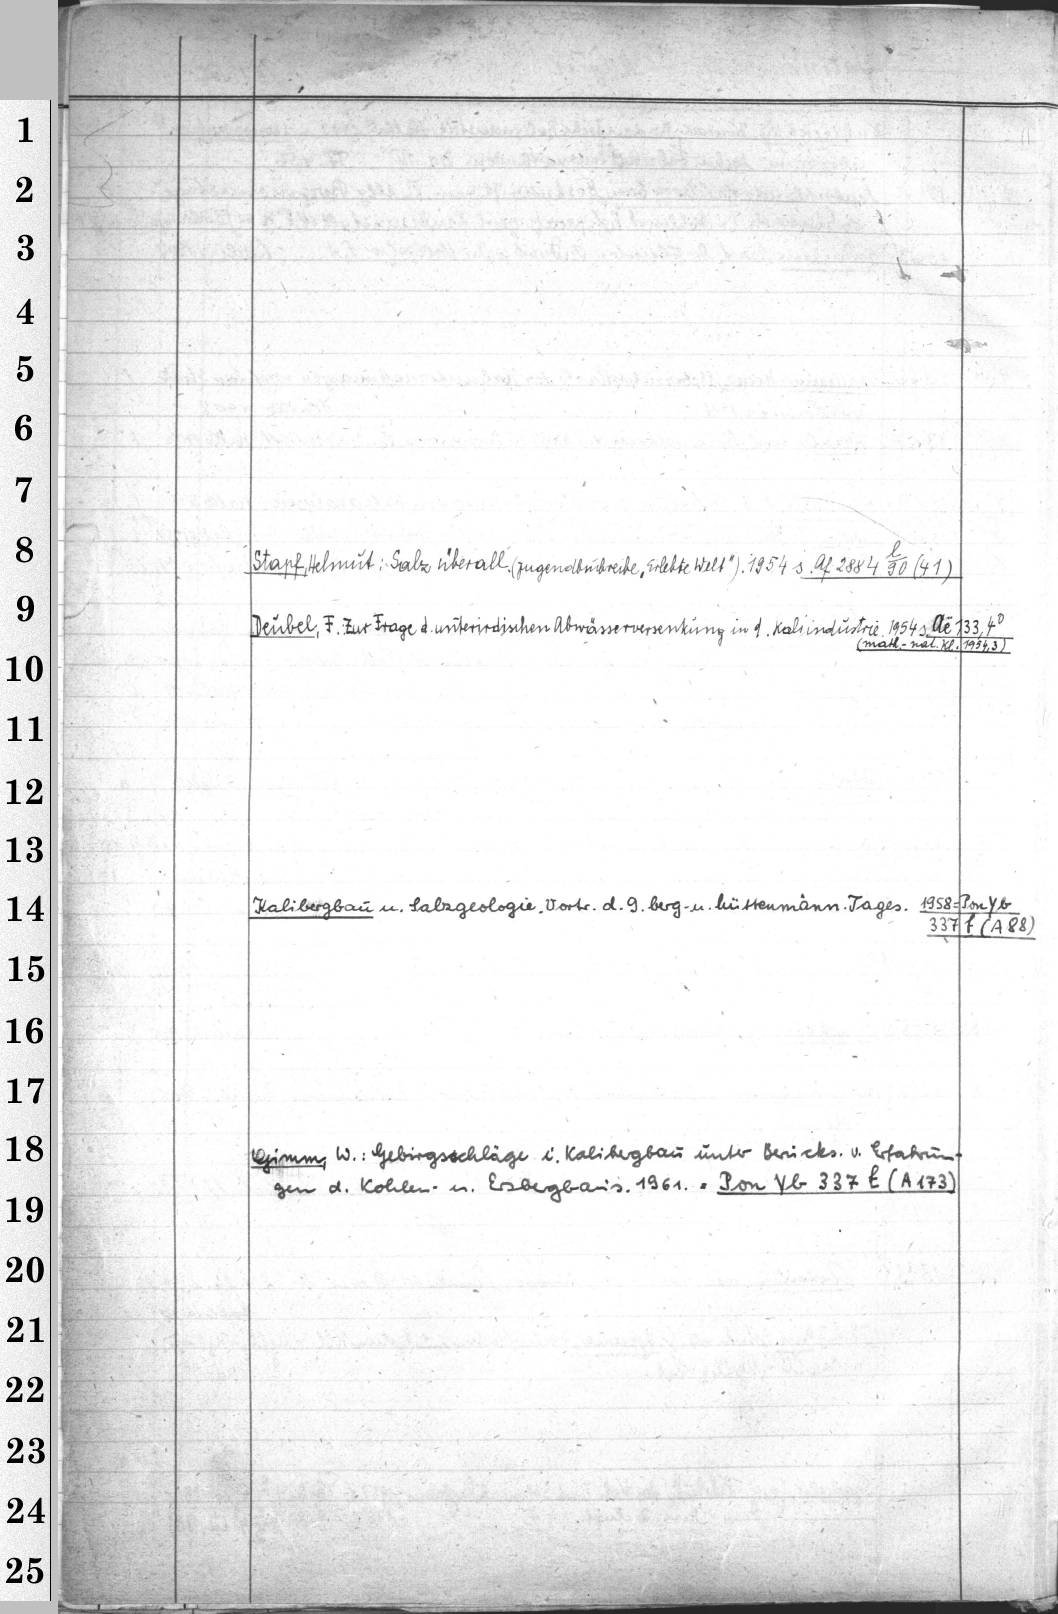 1
2
3
4
5
6
7
8 Stapf, Helmut: Salz überall. (Jugendbuchreihe „Erlebte Welt"). 1954 s. Af 2884 l/90 (41)
9 Deubel, F. Zur Frage d. unterirdischen Abwässerversenkung in d. Kaliindustrie. 1954 s. Aē 133, 4°
(math.-nat. Kl. 1954,3)
10
11
12
13
14 Kalibergbau u. Salzgeologie. Vortr. d. 9. berg- u. hüttenmänn. Tages. 1958 = Pon Yb
337 t (A 88)
15
16
17
18 Gimm, W.: Gebirgsschläge i. Kalibergbau unter Berücks. v. Erfahrun-
gen d. Kohlen- u. Erzbergbaus. 1961. = Pon Yb 337 t (A 173)
19
20
21
22
23
24
25